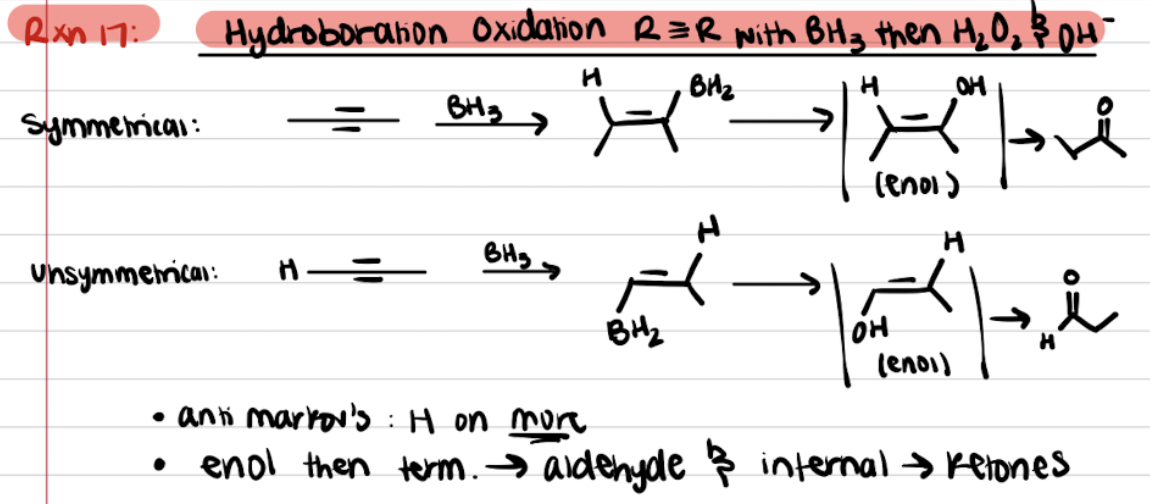 Rxn 17: Hydroboration Oxidation R≡R with BH3 then H2O2 & OH⁻
H BH2 H OH O
Symmetrical: BH3
(enol)
H H
Unsymmetrical: H BH3 O
BH2 OH H
(enol)
• anti markov's : H on more
• enol then term. → aldehyde & internal → ketones